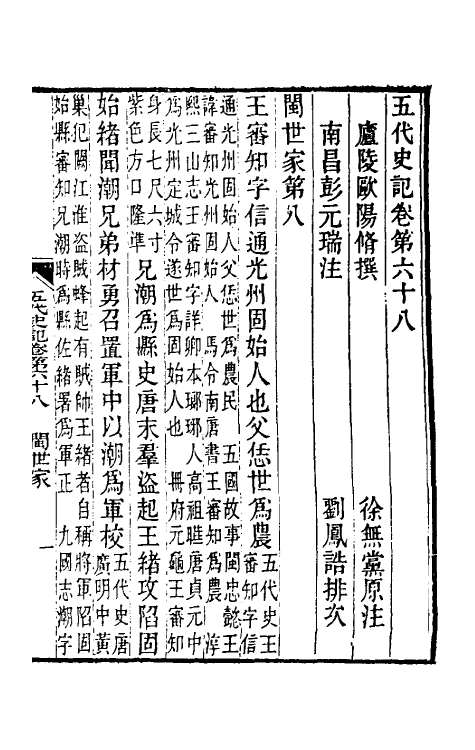 五代史記卷第六十八
廬陵歐陽脩撰　徐無黨原注
南昌彭元瑞注　劉鳳誥排次
閩世家第八
王審知字信通光州固始人也父恁世爲農五代史王審知字信
通光州固始人父恁世爲農民　五國故事閩忠懿王
諱審知光州固始人　馬令南唐書王審知爲農　淳
熙三山志王審知字詳卿本瑯琊人高祖瞱唐貞元中
爲光州定城令遂世爲固始人也　冊府元龜王審知
身長七尺六寸
紫色方口隆準兄潮爲縣史唐末羣盜起王緒攻陷固
始緒聞潮兄弟材勇召置軍中以潮爲軍校五代史唐廣明中黃
巢犯闕江淮盜賊蜂起有賊帥王緒者自稱將軍陷固
始縣審知兄潮時爲縣佐緒署爲軍正　九國志潮字
五代史記卷第六十八　閩世家　一